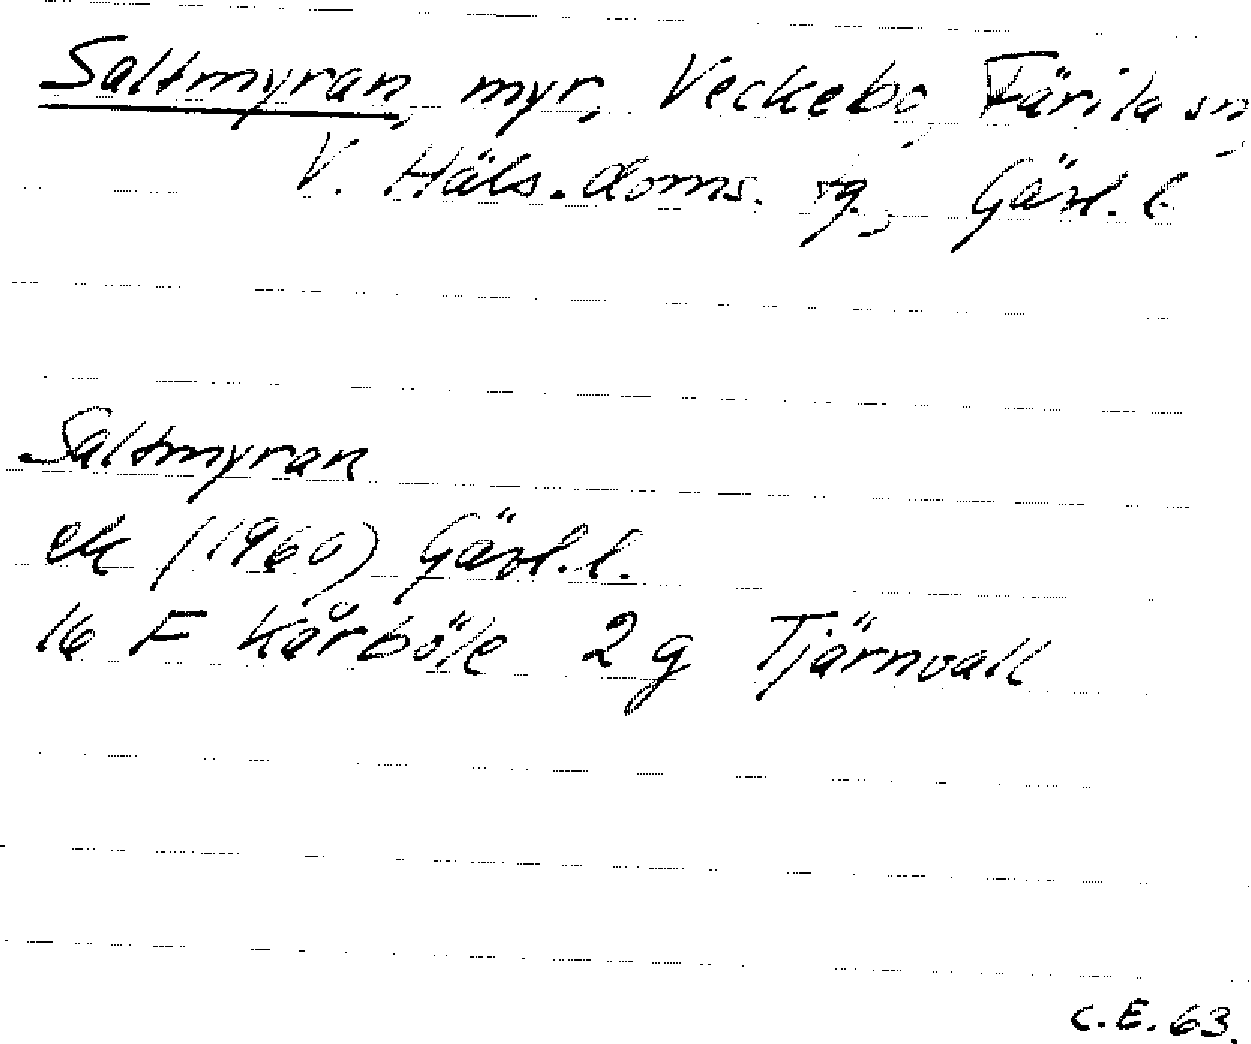 Saltmyran, myr, Veckebo, Färila sn,
V. Häls. doms. tg, Gävl. l.
Saltmyran
ek (1960) Gävl. l.
16 F Kårböle 2 g Tjärnvall
C.E. 63.